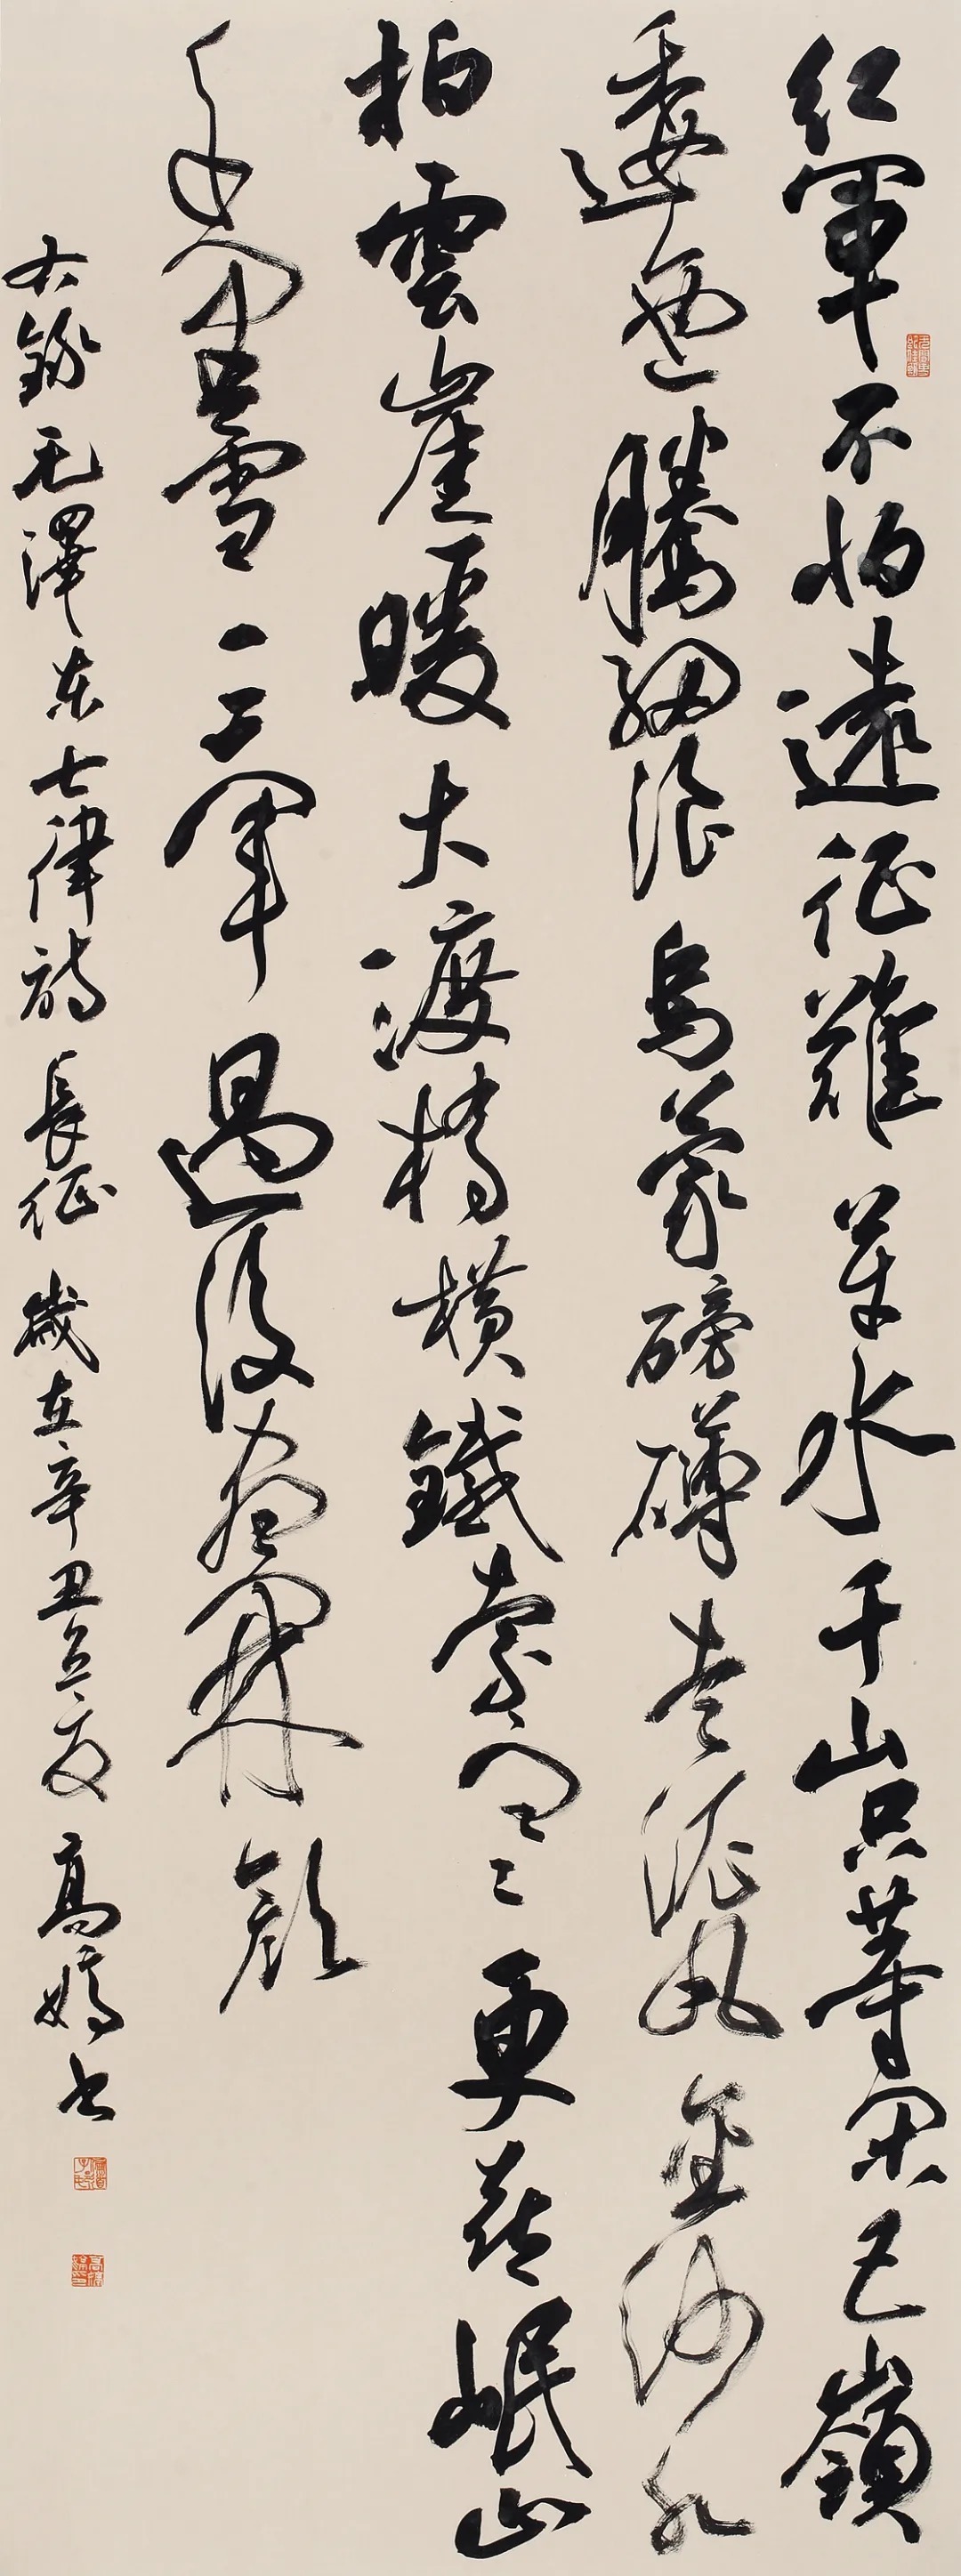 红軍不怕遠征難萬水千山只等閑五嶺
逶迤騰細浪烏蒙磅礴走泥丸金沙水
拍雲崖暖大渡橋橫鐵索寒更喜岷山
千里雪三軍過後盡開顏
右錄毛澤东七律詩長征歲在辛丑立夏高嬌书